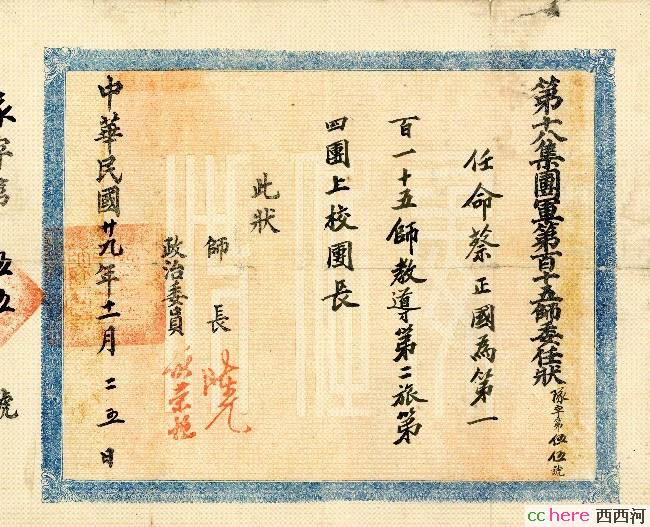 第十八集團軍第百十五師委任狀
隊字第伍伍號
任命蔡正國為第一
百一十五師教導第二旅第
四團上校團長
此狀
師長 陳光
政治委員
中華民國廿九年十一月二五日
號
cchere 西西河